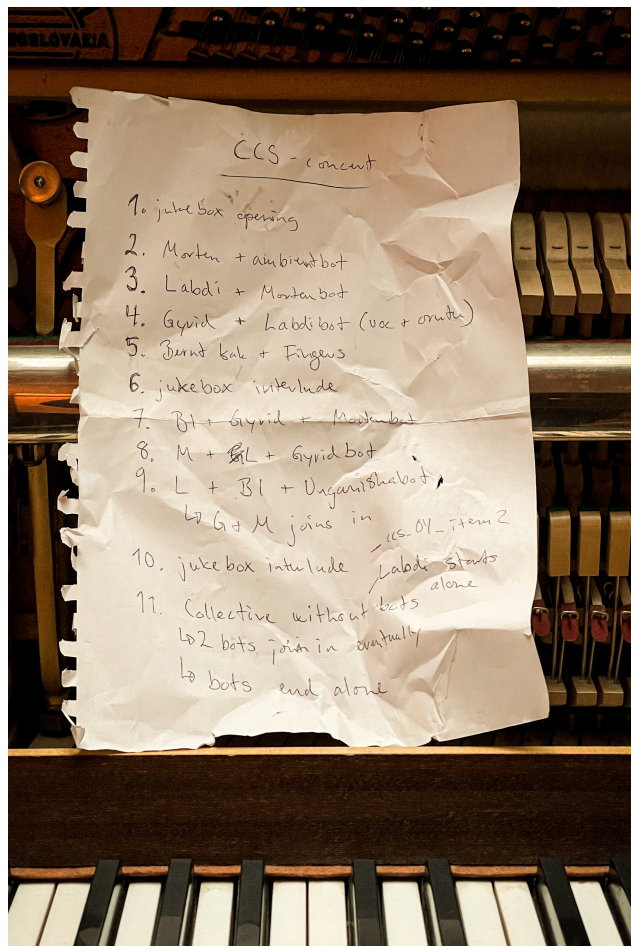 OSLOVAKIA
CCS - concert
1. jukebox opening
2. Morten + ambientbot
3. Labdi + Mortenbot
4. Gyrid + Labdibot (voc + orutu)
5. Bernt Isak + Fingers
6. jukebox interlude
7. BI + Gyrid + Mortenbot
8. M + L + Gyridbot
9. L + BI + Unganishabot
↳ G + M joins in
ccs_04_item2
10. jukebox interlude
Labdi starts
alone
11. Collective without bots
↳ 2 bots join in eventually
↳ bots end alone